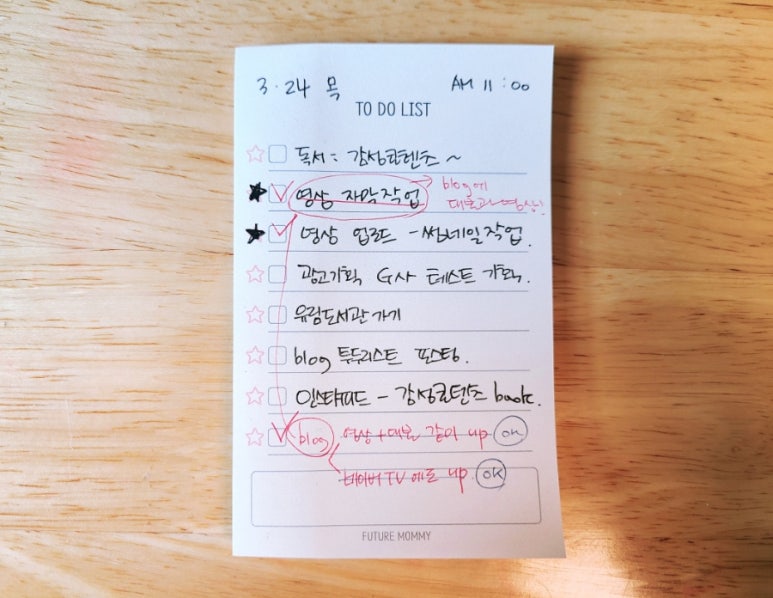 3.24 목 AM 11:00
TO DO LIST
독서: 감성콘텐츠~
영상 자막작업 → blog에 대본과 영상!
영상 업로드 - 썸네일작업.
광고기획 G사 테스트 기획.
유림도서관가기
blog 투두리스트 포스팅.
인스타피드 - 감성콘텐츠 book.
blog 영상+대본 같이 up ok
네이버TV에도 up ok
FUTURE MOMMY